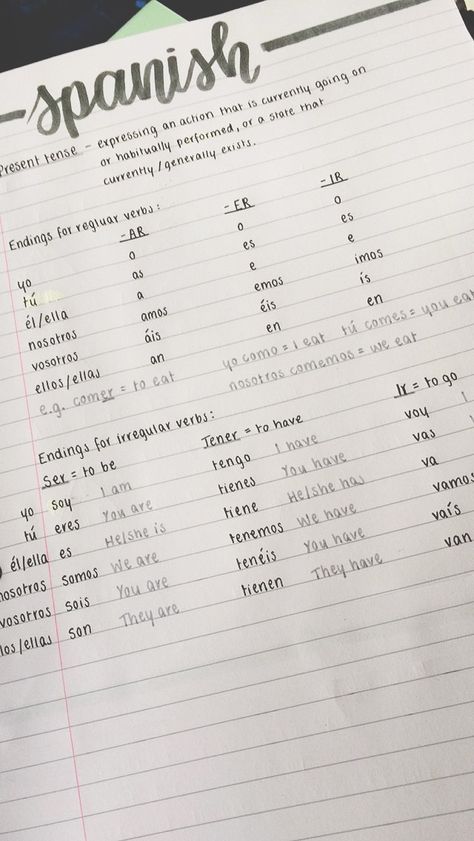 spanish
Present tense - expressing an action that is currently going on
or habitually performed, or a state that
currently/generally exists.
Endings for regluar verbs:
-AR -ER -IR
yo o o o
tú as es es
él/ella a e e
nosotros amos emos imos
vosotros áis éis ís
ellos/ellas an en en
e.g. comer = to eat yo como = I eat tú comes = you eat
nosotros comemos = we eat
Endings for irregular verbs:
Ser = to be Tener = to have Ir = to go
yo soy I am tengo I have voy I
tú eres You are tienes You have vas
él/ella es He/she is tiene He/she has va
nosotros somos We are tenemos We have vamos
vosotros sois You are tenéis You have vaís
los/ellas son They are tienen They have van